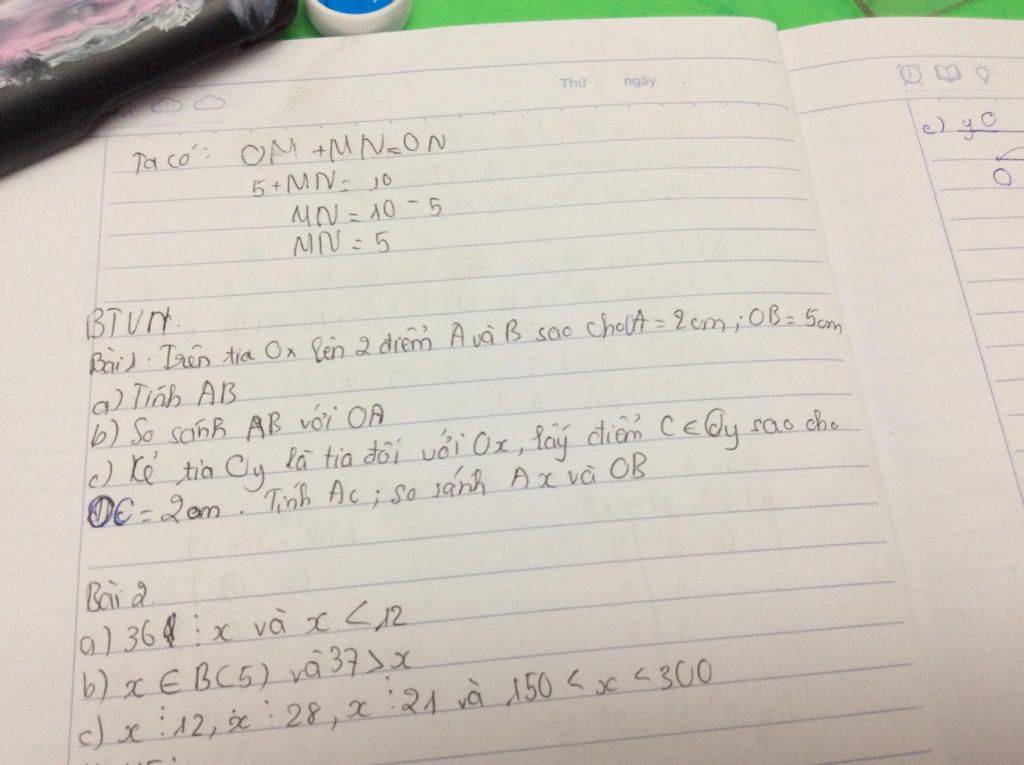 Thứ ngày
Ta có: OM + MN = ON
5 + MN = 10
MN = 10 - 5
MN = 5
BTVN.
Bài 1. Trên tia Ox lên 2 điểm A và B sao cho OA = 2cm; OB = 5cm
a) Tính AB
b) So sánh AB với OA
c) Kẻ tia Oy là tia đối với Ox, lấy điểm C ∈ Oy sao cho
OC = 2cm. Tính AC; so sánh Ax và OB
Bài 2
a) 36 ⋮ x và x < 12
b) x ∈ B(5) và 37 > x
c) x ⋮ 12, x ⋮ 28, x ⋮ 21 và 150 < x < 300
c) yO
O